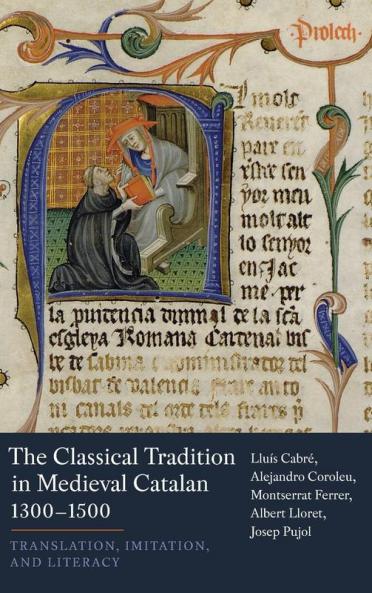 ·Prolech·
l molt
Reverent
pare en
xp̃ist e sen
yor meu
molt alt
lo senyor
en Jac
me per
la prouidencia diuinal de la scã
esgleya Romana Cardenal bis
be de sabina e aministrador del
bisbat de valencia frare anto
ni canals del orde dels frares p̃
The Classical Tradition
in Medieval Catalan
1300–1500
TRANSLATION, IMITATION,
AND LITERACY
Lluís Cabré,
Alejandro Coroleu,
Montserrat Ferrer,
Albert Lloret,
Josep Pujol